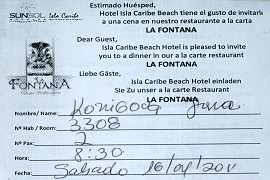 SUNSOL Isla Caribe
Estimado Huésped,
Hotel Isla Caribe Beach tiene el gusto de invitarle
a una cena en nuestro restaurante a la carta
LA FONTANA
Dear Guest,
Isla Caribe Beach Hotel is pleased to invite
you to a dinner in our a la carte restaurant
LA FONTANA
Liebe Gäste,
Isla Caribe Beach Hotel einladen
Sie Zu unser a la carte restaurant
LA FONTANA
LA FONTANA
Nombre/Name:
Nº Hab / Room: 3308
Nº Pax: 2
Hora/Hour: 8:30
Fecha/Date: Sabado 16/04/2011